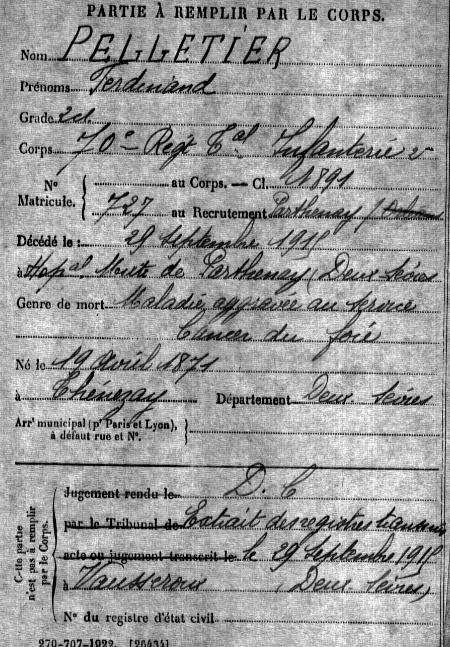 PARTIE À REMPLIR PAR LE CORPS.
Nom PELLETIER
Prénoms Ferdinand
Grade 2cl
Corps 70e Régt Tal Infanterie
N° Matricule. { au Corps. — Cl. 1891
727 au Recrutement Parthenay
Décédé le : 28 septembre 1915
à Hopal Mixte de Parthenay (Deux Sèvres
Genre de mort Maladie aggravée au service
Cancer du foie
Né le 19 avril 1871
à Thénezay Département Deux Sèvres
Arrt municipal (pr Paris et Lyon), à défaut rue et N°. }
Cette partie n'est pas à remplir par le Corps.
Jugement rendu le D. C
par le Tribunal de Extrait des registres
acte ou jugement transcrit le le 29 septembre 1915
à Vausseroux (Deux Sèvres)
N° du registre d'état civil
270-707-1922. [26434]